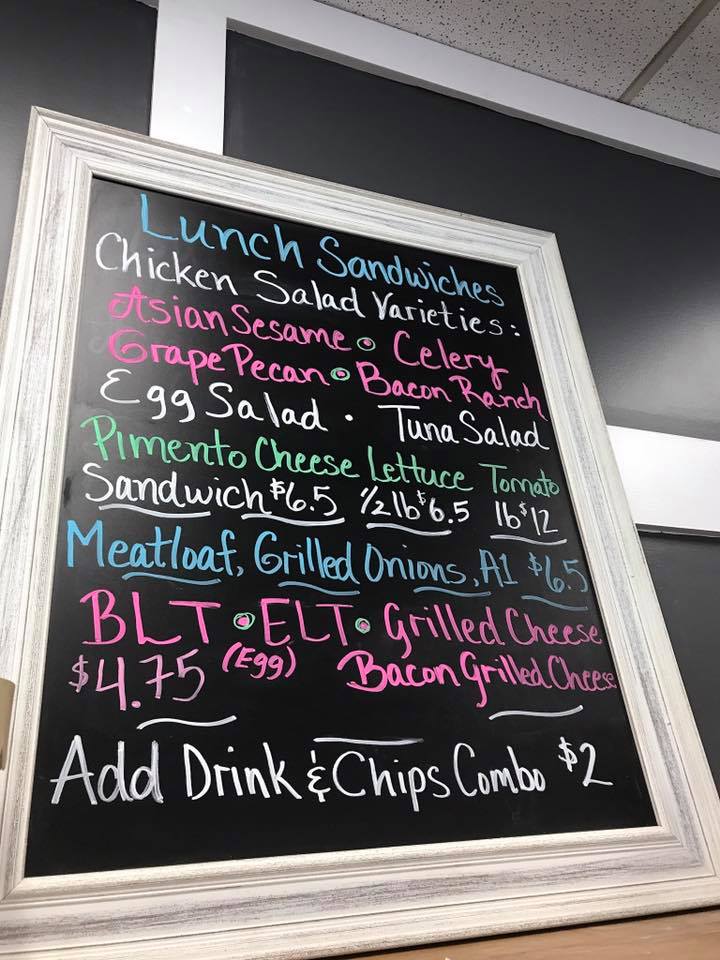 Lunch Sandwiches
Chicken Salad Varieties:
Asian Sesame • Celery
Grape Pecan • Bacon Ranch
Egg Salad • Tuna Salad
Pimento Cheese Lettuce Tomato
Sandwich $6.5 1/2 lb $6.5 lb $12
Meatloaf, Grilled Onions, A1 $6.5
BLT • ELT • Grilled Cheese
$4.75 (Egg) Bacon Grilled Cheese
Add Drink & Chips Combo $2